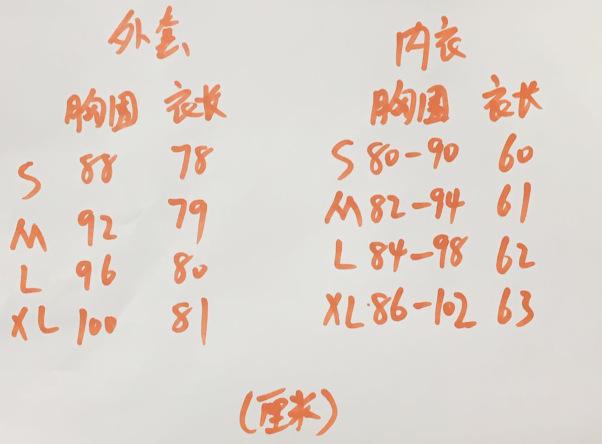 外套 内衣
胸围 衣长 胸围 衣长
S 88 78 S 80-90 60
M 92 79 M 82-94 61
L 96 80 L 84-98 62
XL 100 81 XL·86-102 63
(厘米)